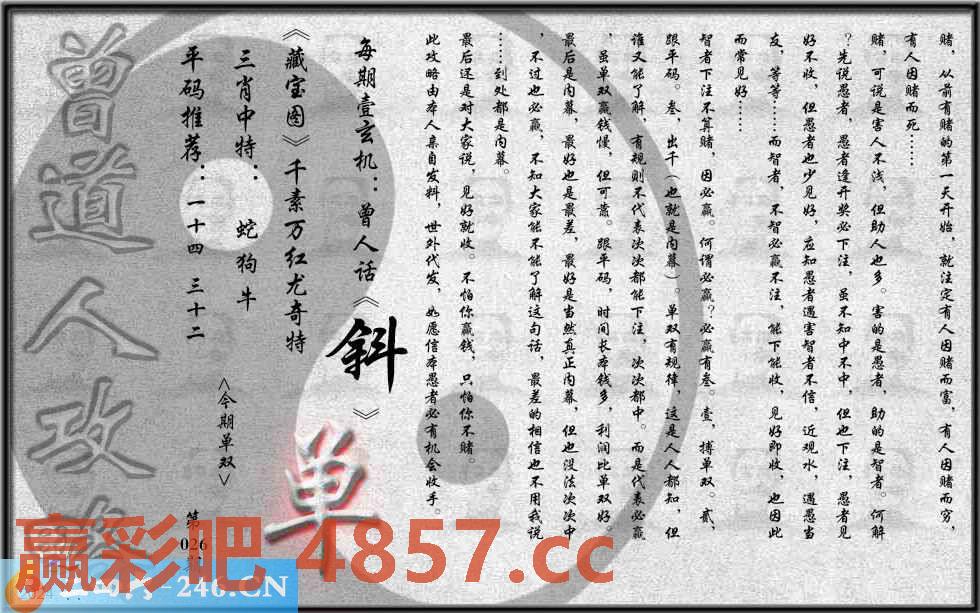 赌，从前有赌的第一天开始，就注定有人因赌而富，有人因赌而穷，
有人因赌而死……
赌，可说是害人不浅，但助人也多。害的是愚者，助的是智者。何解
？先说愚者，愚者逢开奖必下注，虽不知中不中，但也下注，愚者见
好不收，但愚者也少见好，应知愚者遇害智者不信，近观水，遇愚当
友，等等……而智者，不智必赢不注，能下能收，见好即收，也因此
而常见好……
智者下注不算赌，因必赢。何谓必赢？必赢有叁。壹，搏单双。贰，
跟平码。叁，出千（也就是内幕）。单双有规律，这是人人都知，但
谁又能了解，有规则不代表次次都能下注，次次都中。而是代表必赢
，虽单双赢钱慢，但可靠。跟平码，时间长本钱多，利润比单双好。
最后是内幕，最好也是最差，最好是当然真正内幕，但也没法次次中
，不过也必赢，不知大家能不能了解这句话，最差的相信也不用我说
……到处都是内幕。
最后还是对大家说，见好就收。不怕你赢钱，只怕你不赌。
此攻略由本人亲自发料，世外代发，如愿信本愚者必有机会收手。
每期壹玄机：曾人话《斜》
《藏宝图》千素万红尤奇特
三肖中特：蛇狗牛
平码推荐：一十四 三十二
<今期单双>
单
第026期
曾道人攻
赢彩吧 4857.cc
246.CN